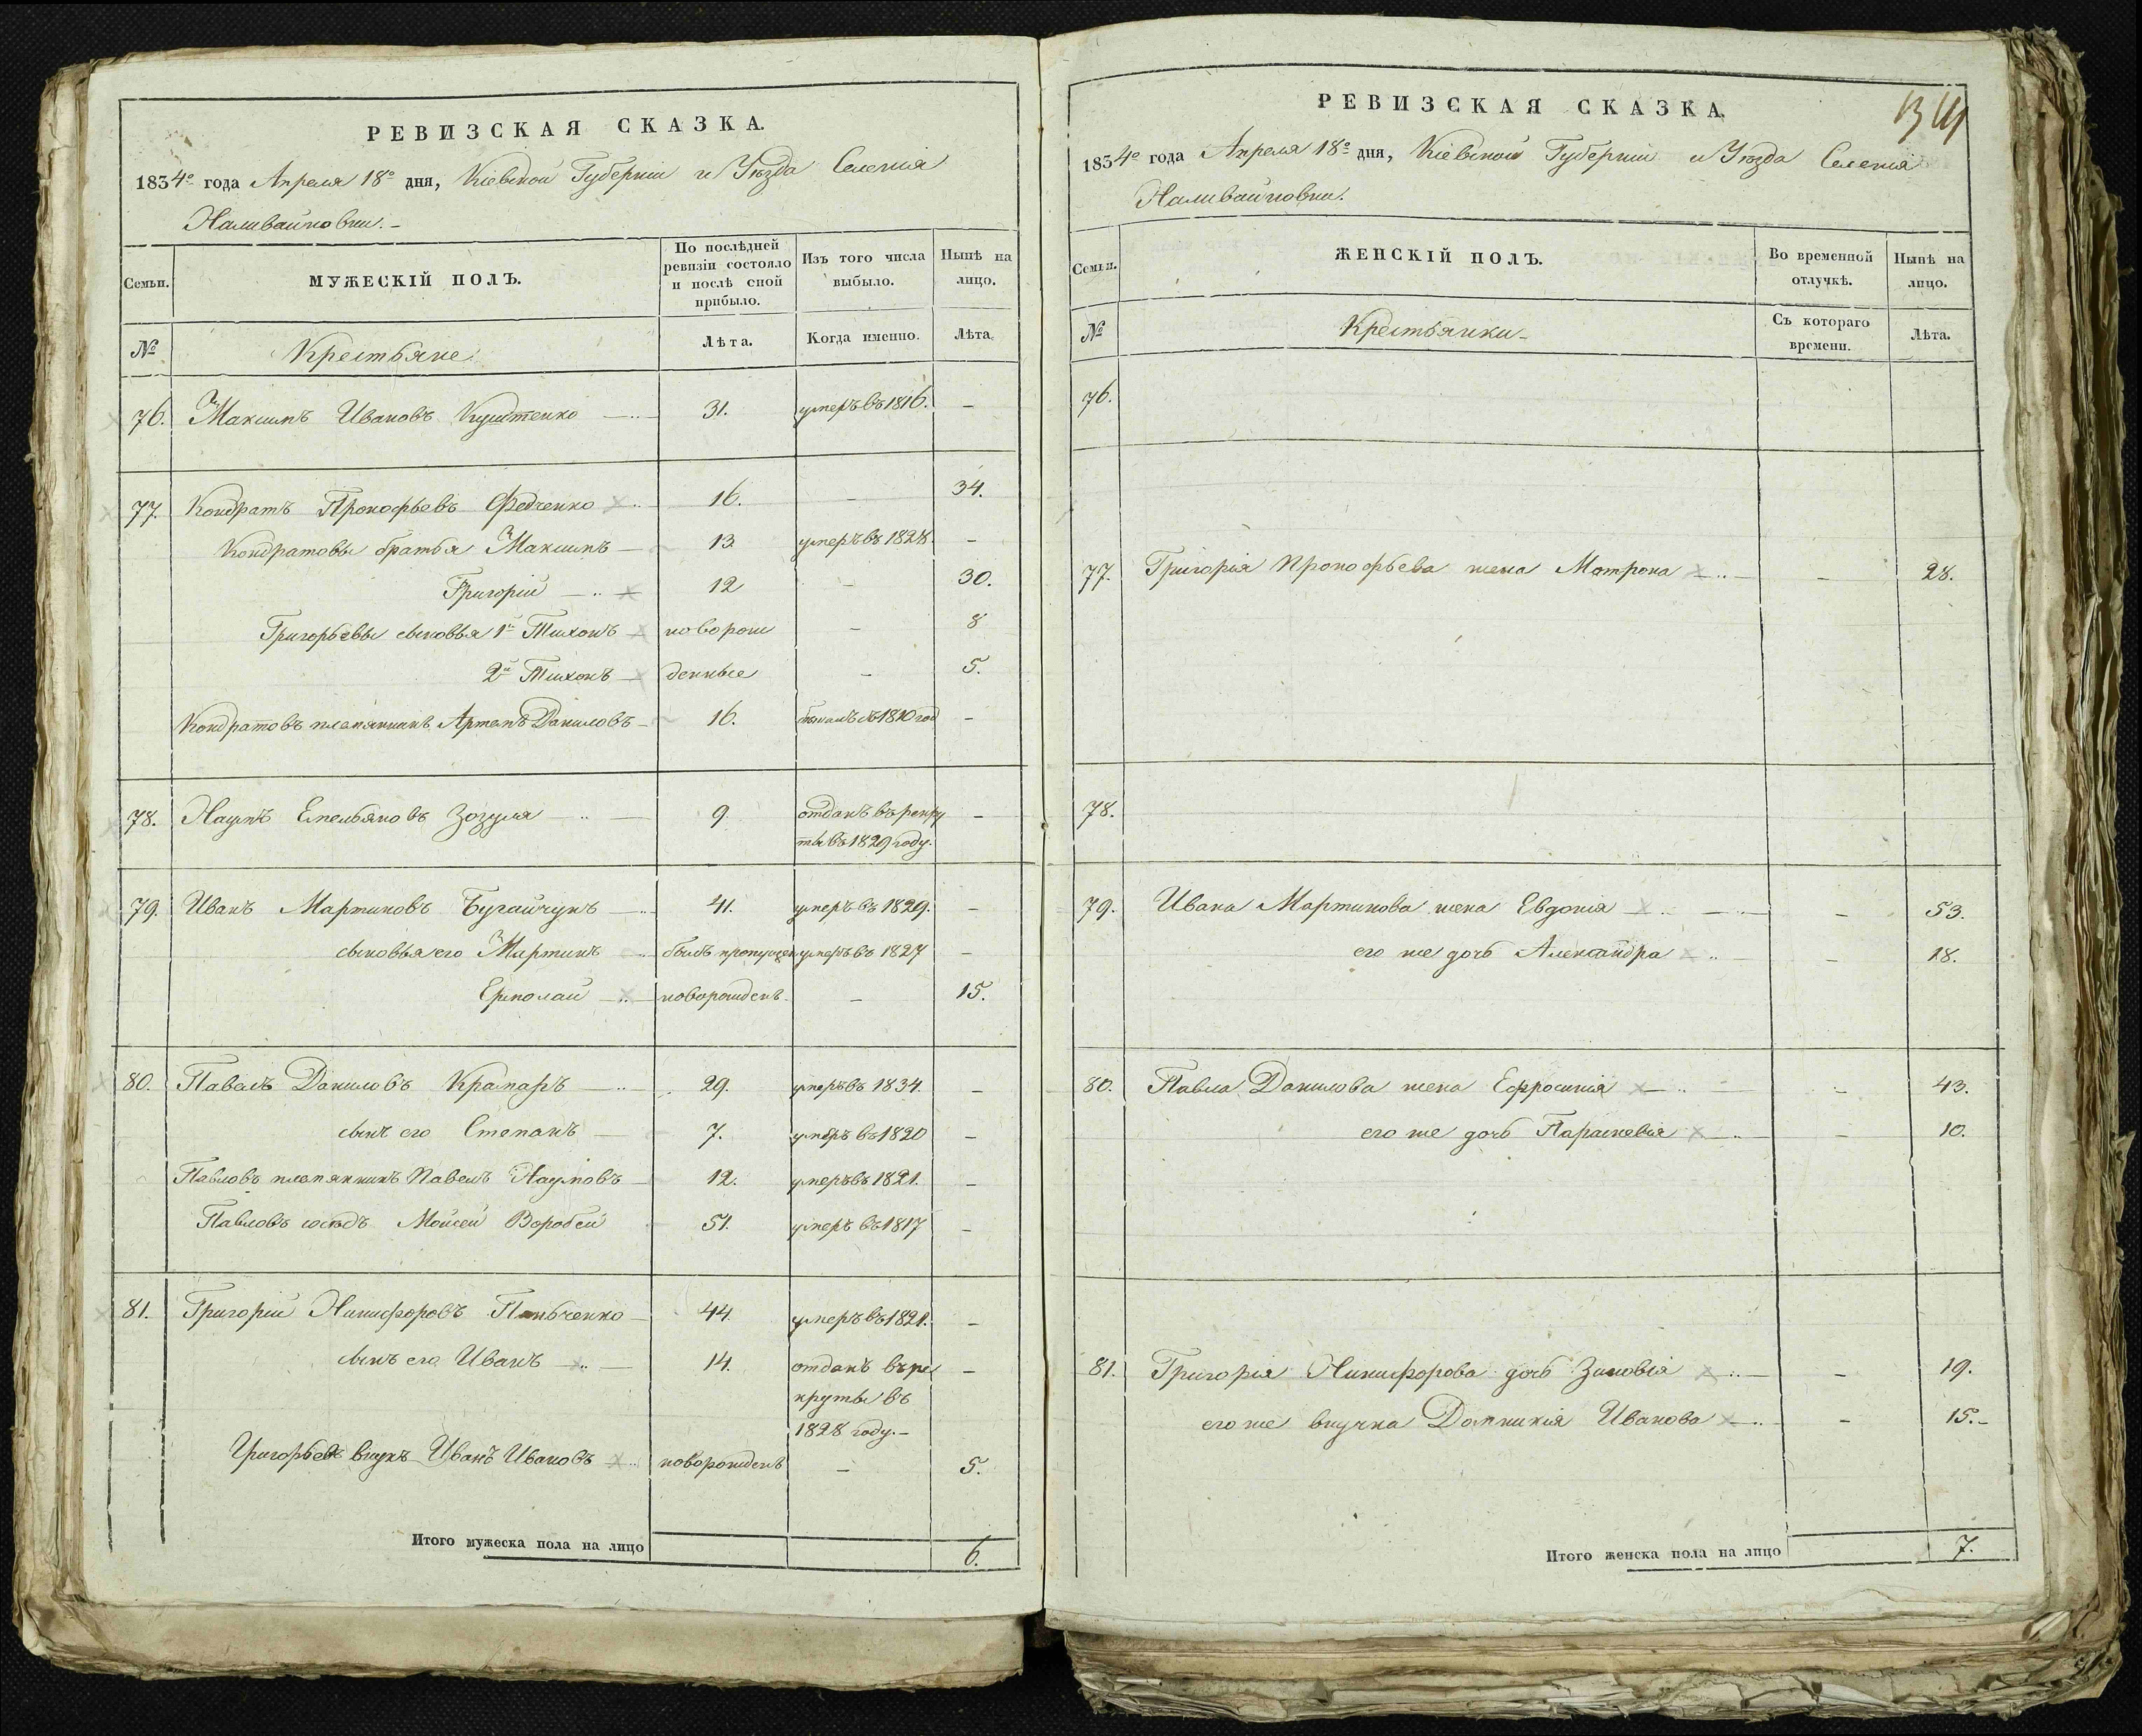 РЕВИЗСКАЯ СКАЗКА.
1834го года Апреля 18го дня, Кіевской Губерніи и Уѣзда Селенія
Наливайковки.-
Семьи.
МУЖЕСКІЙ ПОЛЪ.
По послѣдней ревизіи состояло и послѣ оной прибыло.
Изъ того числа выбыло.
Нынѣ на лицо.
№
Крестьяне
Лѣта.
Когда именно.
Лѣта.
76. Максимъ Ивановъ 31. умеръ въ 1816. -
77. Кондратъ Прокофьевъ Федченко 16. - 34.
Кондратовы братья Максимъ 13 умеръ въ 1828 -
Григорій 12 - 30.
Григорьевы сыновья 1й Тихонъ новорож - 8
2й Тихонъ денные - 5.
Кондратовъ племянникъ Артемъ Даниловъ 16. 1810 год -
78. Наумъ Емельяновъ Зозуля 9. отданъ въ рекру -
ты въ 1829 году.
79. Иванъ Мартиновъ Бугайчукъ 41. умеръ въ 1829. -
сыновья его Мартинъ былъ пропущен умеръ въ 1827 -
Ермолай новорожденъ - 15.
80. Павелъ Даниловъ Крамаръ 29. умеръ въ 1834. -
сынъ его Степанъ 7. умеръ въ 1820 -
Павловъ племянникъ Павелъ Наумовъ 12. умеръ въ 1821. -
Павловъ сосѣдъ Мойсей Воробей 51. умеръ въ 1817 -
81. Григорій Никифоровъ 44. умеръ въ 1821. -
сынъ его Иванъ 14. отданъ въ ре -
круты въ
1828 году.-
Григорьевъ внукъ Иванъ Ивановъ новорожденъ - 5.
Итого мужеска пола на лицо 6.
РЕВИЗСКАЯ СКАЗКА.
1834го года Апреля 18го дня, Кіевской Губерніи и Уѣзда Селенія
Наливайковки.
Семьи.
ЖЕНСКІЙ ПОЛЪ.
Во временной отлучкѣ.
Нынѣ на лицо.
№
Крестьянки-
Съ котораго времени.
Лѣта.
76.
77. Григорія Прокофьева жена Мотрона - 28.
78.
79. Ивана Мартинова жена Евдокія - 53.
его же дочь Александра - 18.
80. Павла Данилова жена Ефросинія - 43.
его же дочь Параскевія - 10.
81. Григорія Никифорова дочь Зиновія - 19.
его же внучка Домникія Иванова - 15.-
Итого женска пола на лицо 7.